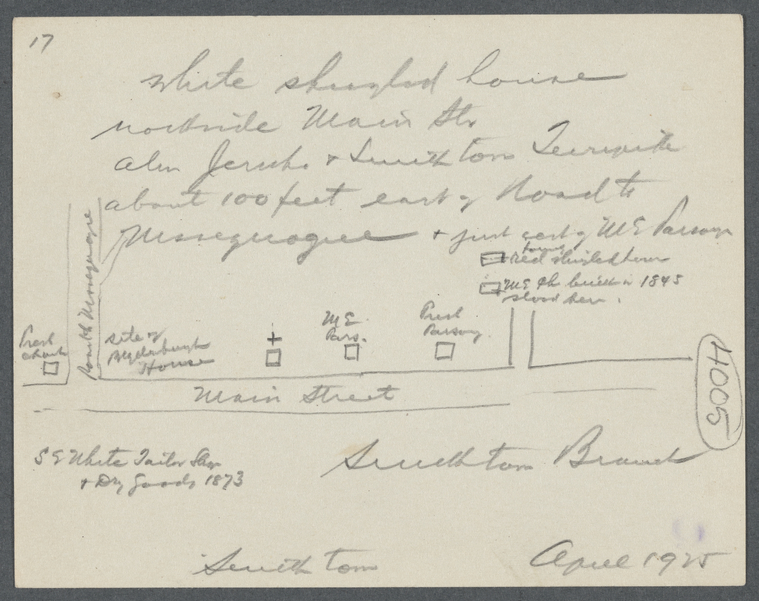 17
White shingled house
north side Main St.
also Jericho & Smithtown Turnpike
about 100 feet east of Road to
Missequogue + just east of ME Parsonage
red shingled house
ME Ch built in 1845
stood here.
Road to Missequogue
Presb
church
site of
Blydenburgh
House
+
ME
Pars.
Presb
Parsonage
Main Street
4005
S E White Tailor Shop
+ Dry Goods 1873
Smithtown Branch
Smithtown
April 1925